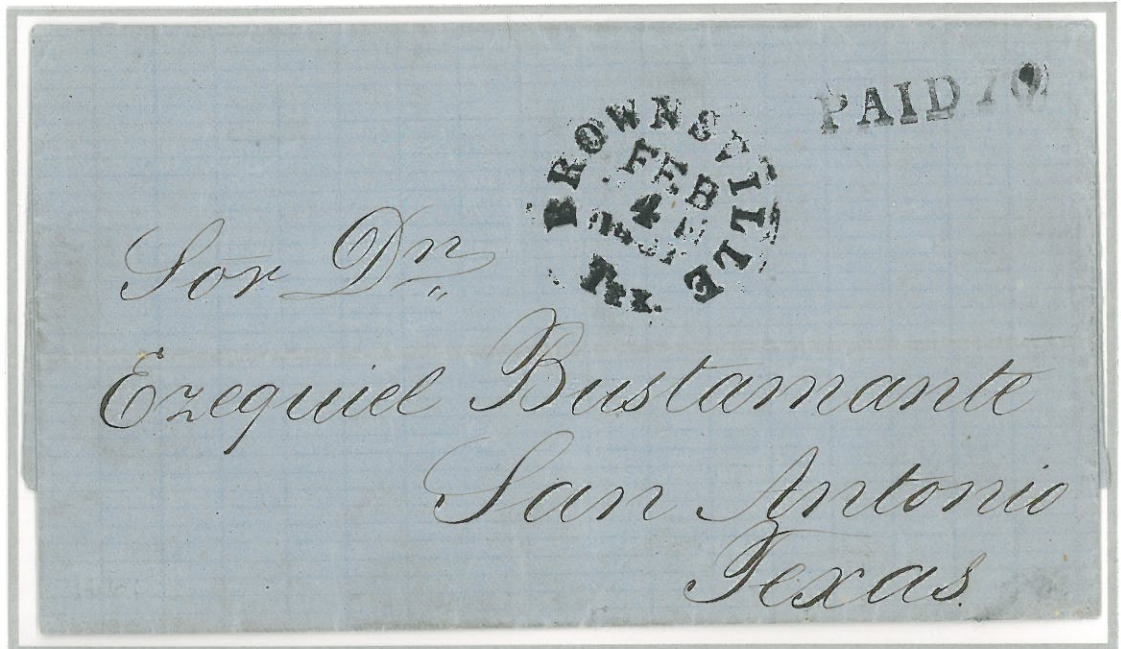 PAID 10
BROWNSVILLE
FEB
4
Tex.
Sor Dn
Ezequiel Bustamante
San Antonio
Texas